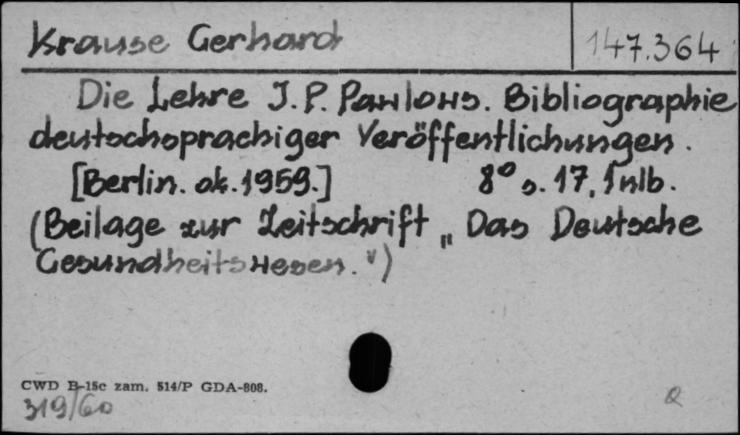 Krause Gerhard 147.364
Die Lehre J.P. Pawlows. Bibliographie
deutschsprachiger Veröffentlichungen.
[Berlin. ok. 1959.] 8° s. 17, 1 nlb.
(Beilage zur Zeitschrift „Das Deutsche
Gesundheitswesen.")
CWD B-15c zam. 514/P GDA-808.
319/60
Q